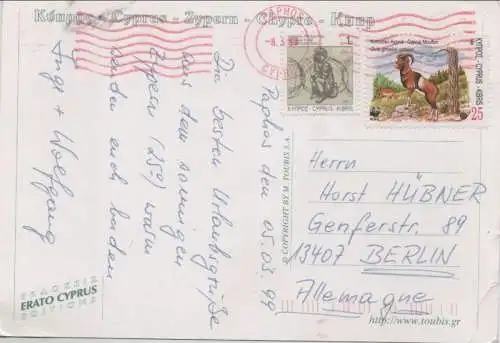 Κύπρος - Cyprus - Zypern - Chypre - Кипр
Paphos den 05.03.99
Die besten Urlaubsgrüße
aus dem sonnigen
Zypern (25°) warm
senden euch beiden
Inge + Wolfgang
ΚΥΠΡΟΣ CYPRUS KIBRIS
1
ΚΥΠΡΟΣ - CYPRUS - KIBRIS
Κυπριακό Αγρινό - Cyprus Mouflon
25
Herrn
Horst HÜBNER
Genferstr. 89
13407 BERLIN
Allemagne
ΕΚΔΟΣΕΙΣ
ERATO CYPRUS
EDITIONS
© COPYRIGHT BY M. TOUBIS S.A.
http://www.toubis.gr